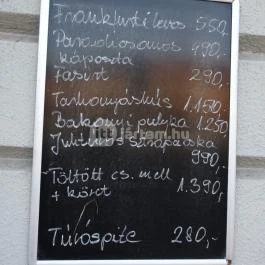 Frankfurti leves 550,-
Paradicsomos 490,-
káposzta
Fasírt 290,-
Tarhonyáshús 1.150,-
Bakonyi pulyka 1.250,-
Juhtúrós sztrapacska
990,-
Töltött cs. mell
+ köret 1.390,-
Túróspite 280,-
ittjártam.hu